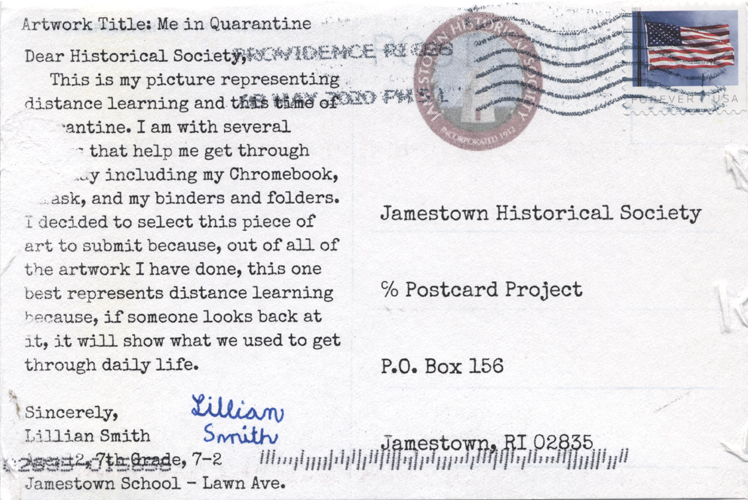 Artwork Title: Me in Quarantine
Dear Historical Society,
This is my picture representing
distance learning and this time of
antine. I am with several
that help me get through
ay including my Chromebook,
ask, and my binders and folders.
I decided to select this piece of
art to submit because, out of all of
the artwork I have done, this one
best represents distance learning
because, if someone looks back at
it, it will show what we used to get
through daily life.
Sincerely,
Lillian Smith
7th Grade, 7-2
Jamestown School - Lawn Ave.
Lillian
Smith
PROVIDENCE RI 028
MAY 2020 PM
JAMESTOWN HISTORICAL SOCIETY
INCORPORATED 1912
FOREVER USA
Jamestown Historical Society
℅ Postcard Project
P.O. Box 156
Jamestown, RI 02835